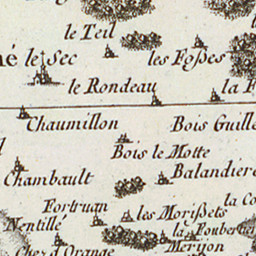 le Teil
né le Sec
les Foßes
le Rondeau
la F
Chaumillon
Bois Guille
Bois le Motte
Chambault
Balandiere
Fortruan
la Co
Nentillé
les Morißets
la Fouberter
Chez d'Orange
Merijon